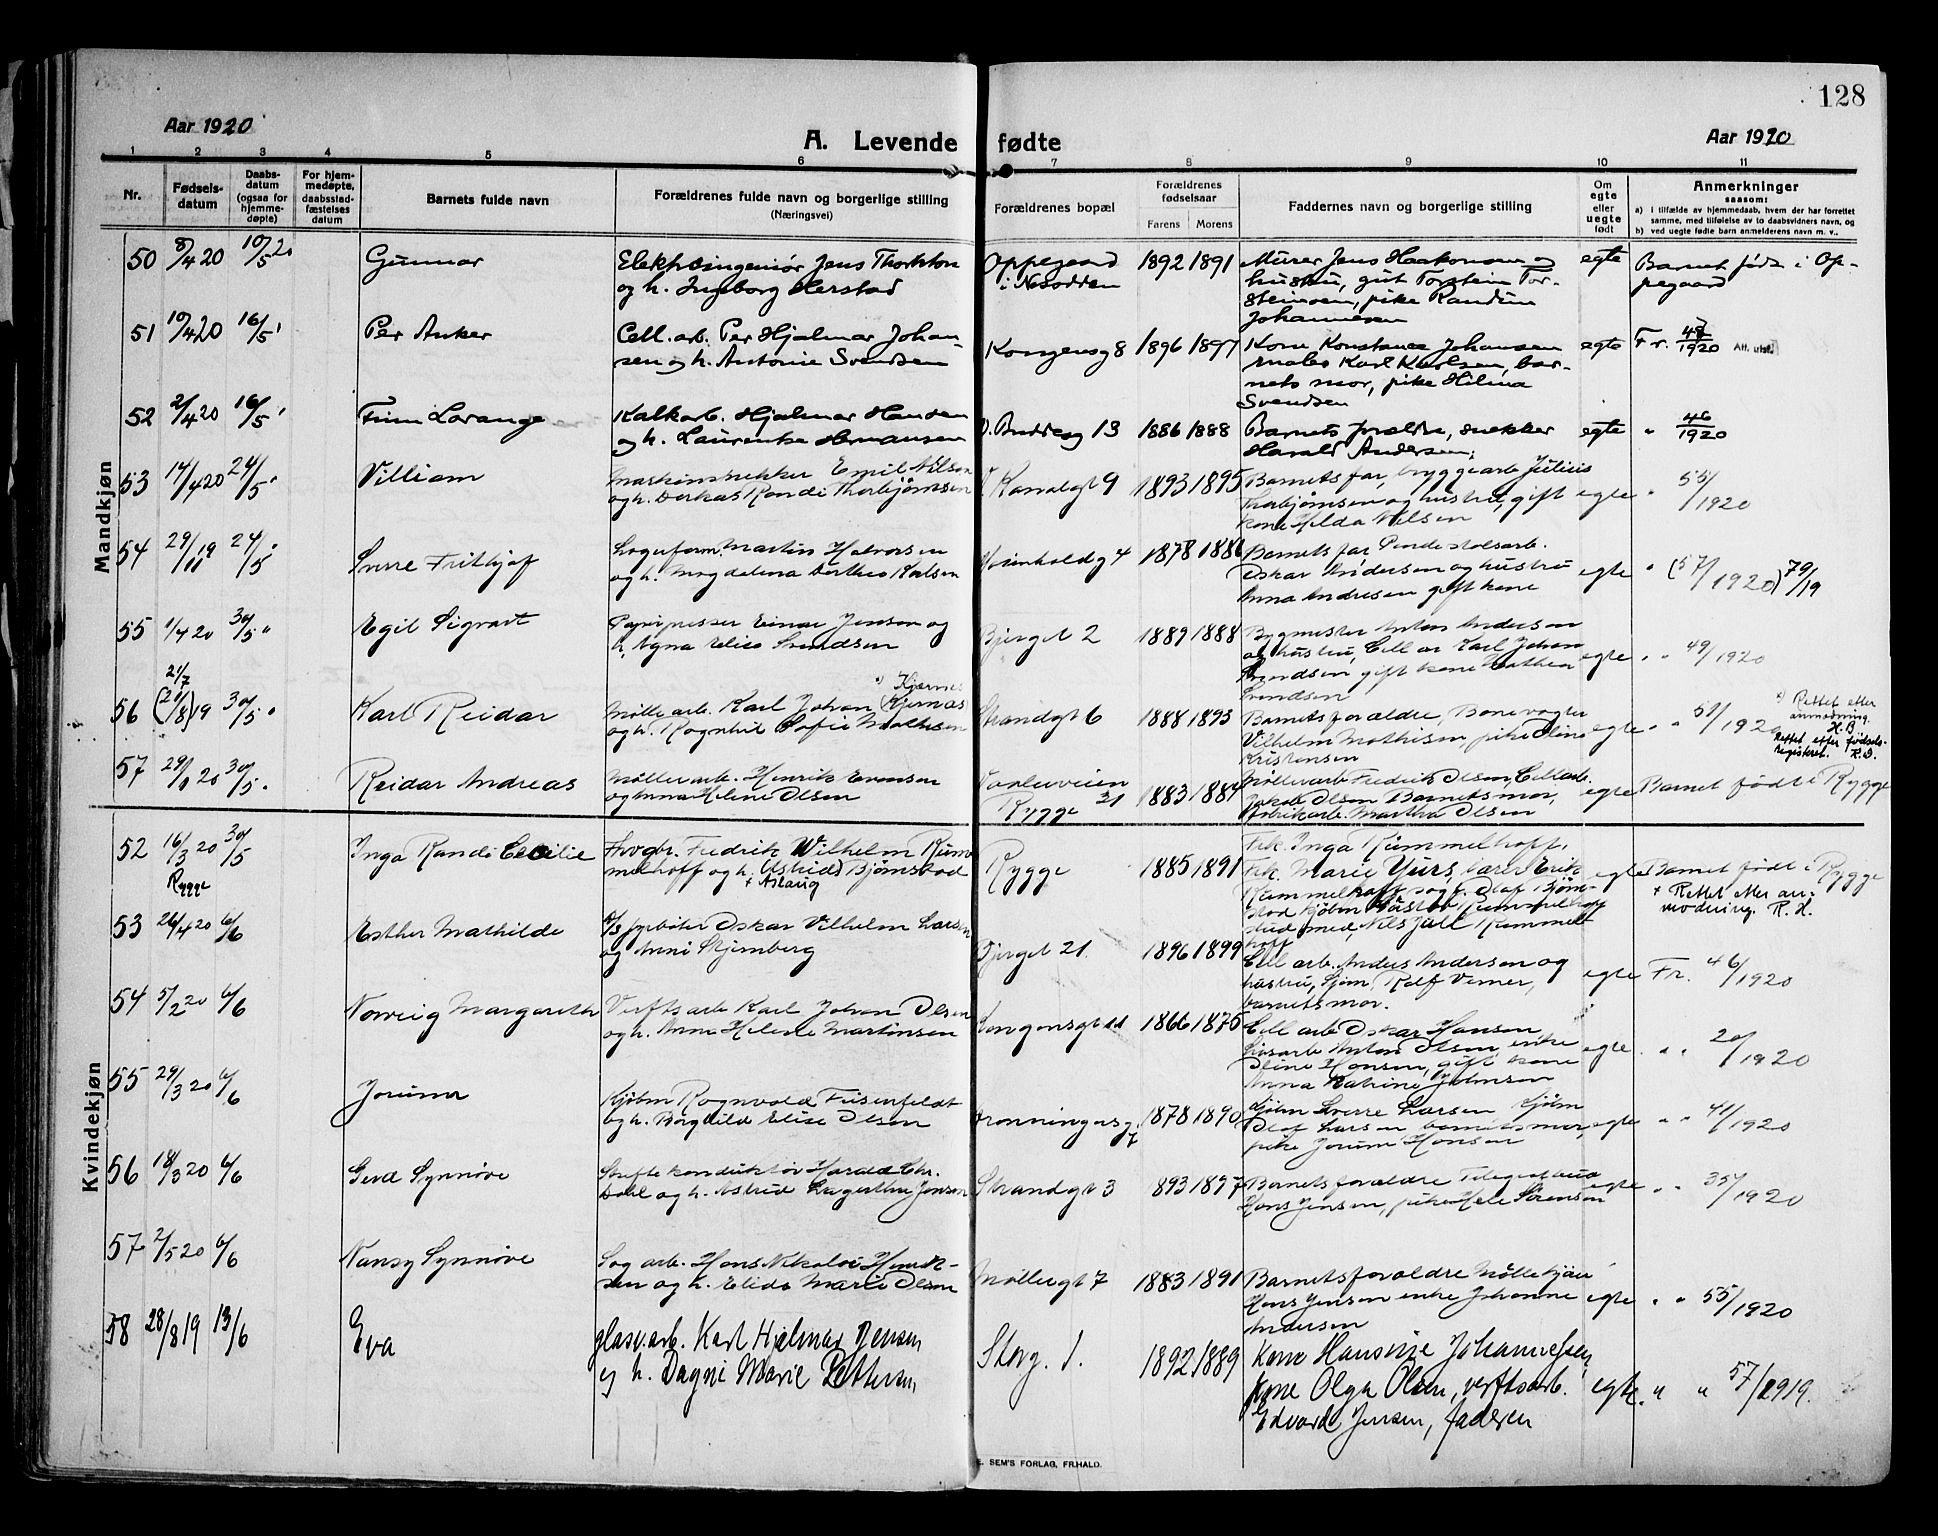 128
Aar 1920
A. Levende fødte
Aar 1920
1 2 3 4 5 6 7 8 9 10 11
Nr.
Fødsels-
datum
Daabs-
datum
(ogsaa for
hjemme-
døpte)
For hjem-
medøpte,
daabsstad-
fæstelses
datum
Barnets fulde navn
Forældrenes fulde navn og borgerlige stilling
(Næringsvei)
Forældrenes bopæl
Forældrenes
fødselsaar
Farens Morens
Faddernes navn og borgerlige stilling
Om
egte
eller
uegte
født
Anmerkninger
saasom:
a) I tilfælde av hjemmedaab, hvem der har forrettet
samme, med tilføielse av to daabsvidners navn, og
b) ved uegte fødte barn anmelderens navn m. v.,
Mandkjøn
50 8/4 20 10/5 20 Gunnar
og h. Ingeborg Herstad
Oppegaard
i Nesodden
1892 1891
Murer Jens Haakonsen og
hustru, gut Torstein Tor-
steinsen, pike Randun
Johannesen
egte
Barnet født i Op-
pegaard
51 19/4 20 16/5 Per Anker
Cell. arb. Per Hjalmar Johan-
sen og h. Antonie Svendsen
Kongensg 8 1896 1897
Kone Konstance Johansen
maler Karl Karlsen, bar-
nets mor, pike Hilma
Svendsen
egte Fr. 1920
52 2/4 20 16/5 Finn Lorange
Kalkarb. Hjalmar Hansen
og h. Laurentse Hermansen
13 1886 1888
Barnets forældre, snekker
Harald Andersen,
egte " 46/1920
53 14/4 20 24/5 Villiam
Maskinsnekker Emil Nilsen
og h. Dorkas Randi Thorbjørnsen
Kanalgt 9 1893 1895
Barnets far, bryggearb Julius
Thorbjørnsen og hustru, gift
kone Hilda Nilsen
egte " 55/1920
54 29/11 19 24/5 Sverre Frithjof
Lagerform. Martin Halvorsen
og h. Magdalena Dorthea Karlsen
4 1878 1886
Barnets far
Oskar Andersen og hustru
Anna Andresen gift kone
egte " (57/1920) 79/19
55 1/4 20 30/5 " Egil Sigvart
Papirpresser Einar Jensen og
h. Agna Elise Svendsen
Bjerget 2 1889 1888
Bygmester Anton Anderson
og hustru, Cell ar Karl Johan
Svendsen gift kone Mathea
Svendsen
egte " " 49/1920
21/7
56 (21/8) 19 30/5 " Karl Reidar
x) Kjærnes
Mølle arb. Karl Johan (Kjernas)
og h. Ragnhil Sofie Mathisen
Strandgt 6 1888 1893
Barnets forældre,
Vilhelm Mathisen, pike Oline
Kristensen
egte " " 1920
x) Rettet etter
anmodning.
H. B.
Rettet efter fødsels-
registeret. R. D.
57 20 30/5 Reidar Andreas
Møllerarb. Henrik Evensen
og Anna Helene Olsen
Rygge 21 1883 1884
Møllerarb Fredrik Olsen, Cell arb.
Jakob Olsen Barnets mor,
fabrikarb. Martha Olsen
egte Barnet født i Rygge
Kvindekjøn
52 16/3 20 30/5 Inga Randi Cecilie
Rygge
Fredrik Wilhelm Rum-
melhoff og h. (Astrid) Bjørnstad
+ Aslaug
Rygge 1885 1891
Frk. Inga Rummelhoff,
Frk. Marie Yurs, lærer Erik
Rummelhoff, sogf. Olaf Bjørn-
stad kjøbm Gustav Rummelhoff
stud med, Nils Jull Rummel-
hoff
egte Barnet født i Rygge
+ Rettet etter an-
modning. R. H.
53 26/4 20 6/6 Esther Mathilde
fyrbøter Oskar Vilhelm Larsen
og Anni Stjernberg
Bjerget 21. 1896 1899
Cell arb. Anders Andersen og
hustru, Sjøm. Rolf Verner,
barnets mor.
egte Fr. 46/1920
54 5/2 20 6/6 Norveig Margareth
Verftsarb Karl Johan Olsen
og h. Anna Helene Martinsen
Kongensgt 1866 1875
Cell arb Oskar Hansen
Anton Olsen, enke
Oline Hansen, gift kone
Anna Katrine Johnsen
egte " " 20/1920
55 29/3 20 6/6 Jorunn
Kjøbm Ragnvald Feisenfeldt
og h. Borghild Elise Olsen
Dronningensg 7 1878 1890
Kjøbm Sverre Larsen Kjøbm
Olaf Larsen barnets mor,
pike Jorun Hansen
egte " " 41/1920
56 18/3 20 6/6 Gerd Synnøve
Skiftekonduktør Harald Chr.
Dahl og h. Astrid Lagertha Jensen
Strandgt 3 893 1897
Barnets forældre Telegrafbud
Hans Jensen, pike Hele Sørensen
egte " " 35/1920
57 2/5 20 6/6 Nansy Synnøve
Sag arb. Hans Nikolai Henrik-
sen og h. Elida Marie Olsen
Møllergt 7 1883 1891
Barnets forældre
Hans Jensen enke Johanne
Andersen
egte " " 55/1920
58 28/8 19 13/6 Eva
glasv.arb. Karl Hjalmar Jensen
og h. Dagni Marie Pettersen
Storg. 1. 1892 1889
Kone Hansine Johannessen,
kone Olga Olsen, verftsarb.
Edvard Jensen, faderen
egte " " 57/1919.
E. SEM'S FORLAG, FR.HALD.